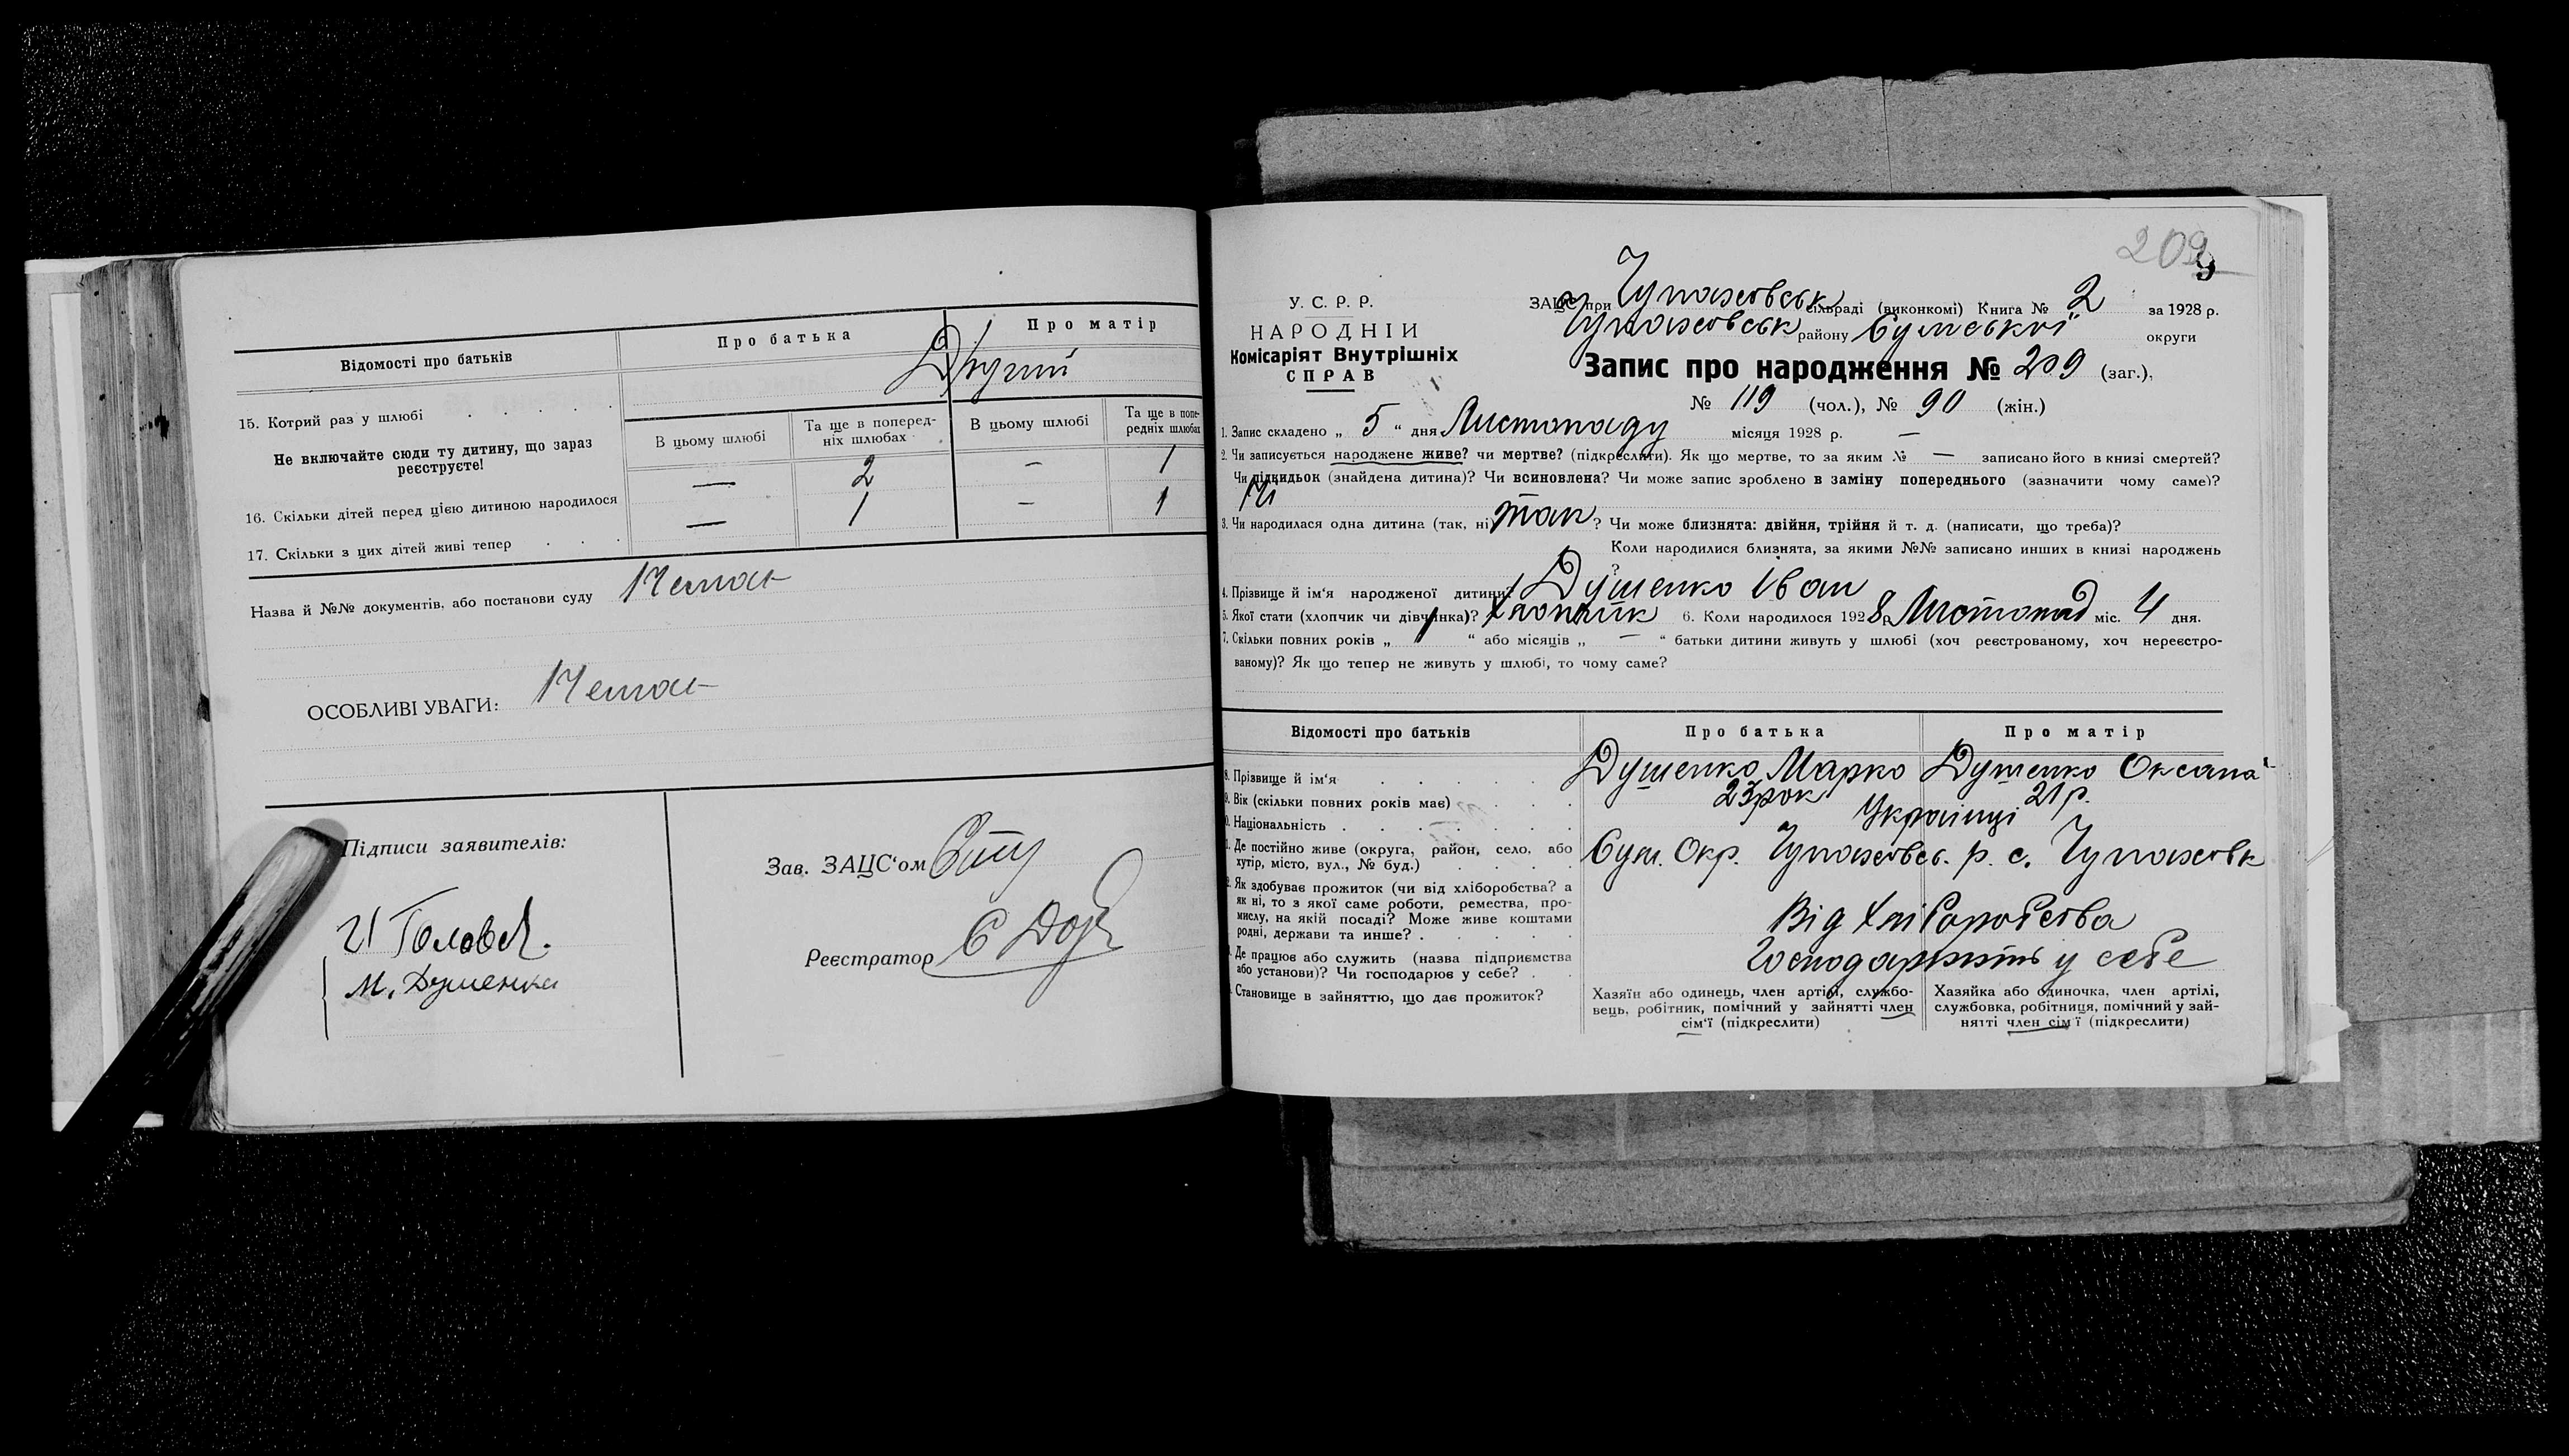 Відомості про батьків
Про батька
Про матір
15. Котрий раз у шлюбі
Другий
Не включайте сюди ту дитину, що зараз реєструєте!
В цьому шлюбі
Та ще в поперед-
ніх шлюбах
В цьому шлюбі
Та ще в попе-
редніх шлюбах
16. Скільки дітей перед цією дитиною народилося
— 2 — 1
17. Скільки з цих дітей живі тепер
— 1 — 1
Назва й №№ документів, або постанови суду Немає
ОСОБЛИВІ УВАГИ: Немає
Підписи заявителів:
М. Душенко
Зав. ЗАЦС'ом
Реєстратор
209
У. С. Р. Р.
НАРОДНІЙ
Комісаріят Внутрішніх
СПРАВ
ЗАЦС при Чупахівськ сільраді (виконкомі) Книга № 2 за 1928 р.
Чупахівськ району Сумської округи
Запис про народження № 209 (заг.),
№ 119 (чол.), № 90 (жін.)
1. Запис складено „ 5 “ дня Листопаду місяця 1928 р. —
2. Чи записується народжене живе? чи мертве? (підкреслити). Як що мертве, то за яким № — записано його в книзі смертей?
Чи підкидьок (знайдена дитина)? Чи всиновлена? Чи може запис зроблено в заміну попереднього (зазначити чому саме)?
Ні
3. Чи народилася одна дитина (так, ні) так ? Чи може близнята: двійня, трійня й т. д. (написати, що треба)?
Коли народилися близнята, за якими №№ записано инших в книзі народжень
?
4. Прізвище й ім'я народженої дитини? Душенко Іван
5. Якої стати (хлопчик чи дівчинка)? Хлопчик 6. Коли народилося 1928 р. Листопад міс. 4 дня.
7. Скільки повних років „ 1 “ або місяців „ — “ батьки дитини живуть у шлюбі (хоч реєстрованому, хоч нереєстро-
ваному)? Як що тепер не живуть у шлюбі, то чому саме?
Відомості про батьків
Про батька
Про матір
8. Прізвище й ім'я Душенко Марко Душенко Оксана
9. Вік (скільки повних років має) 23 рок 21 р.
10. Національність Українці
11. Де постійно живе (округа, район, село, або
хутір, місто, вул., № буд.)
Сум. Окр. Чупахівсь. р. с. Чупахівк
12. Як здобуває прожиток (чи від хліборобства? а
як ні, то з якої саме роботи, ремества, про-
мислу, на якій посаді? Може живе коштами
родні, держави та инше?
Від хліборобства
13. Де працює або служить (назва підприємства
або установи)? Чи господарює у себе?
Господарюють у себе
Становище в зайняттю, що дає прожиток?
Хазяїн або одинець, член артілі, службо-
вець, робітник, помічний у зайнятті член
сім'ї (підкреслити)
Хазяйка або одиночка, член артілі,
службовка, робітниця, помічний у зай-
нятті член сім'ї (підкреслити)